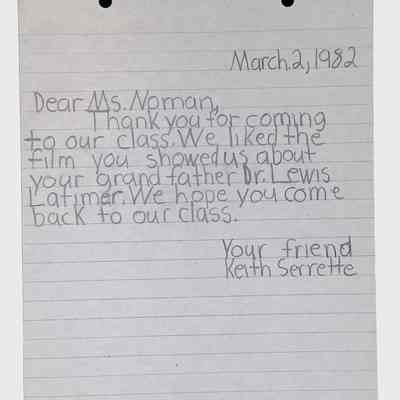 March.2,1982
Dear Ms. Norman,
Thank you for coming
to our class. We liked the
film you showed us about
your grand father Dr. Lewis
Latimer. We hope you come
back to our class.
Your friend
Keith Serrette